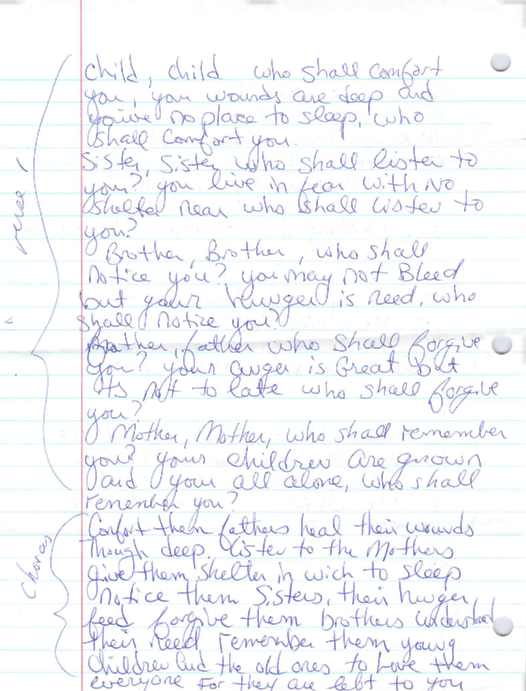 verse 1
child, child who shall comfort
you, your wounds are deep and
you're no place to sleep, who
shall comfort you.
Sister, Sister who shall listen to
you? you live in fear with no
shelter near who shall listen to
you?
Brother, Brother, who shall
notice you? you may not Bleed
but your hunger is need, who
shall notice you?
father, father who shall forgive
you? your anger is Great but
its not to late who shall forgive
you?
Mother, Mother, who shall remember
you? your children are grown
and your all alone, who shall
remember you?
Chorus
Comfort them fathers heal their wounds
though deep, listen to the Mothers
give them shelter in wich to sleep
notice them Sisters, their hunger,
feed forgive them Brothers understand
their need remember them young
children and the old ones to love them
everyone For they are left to you